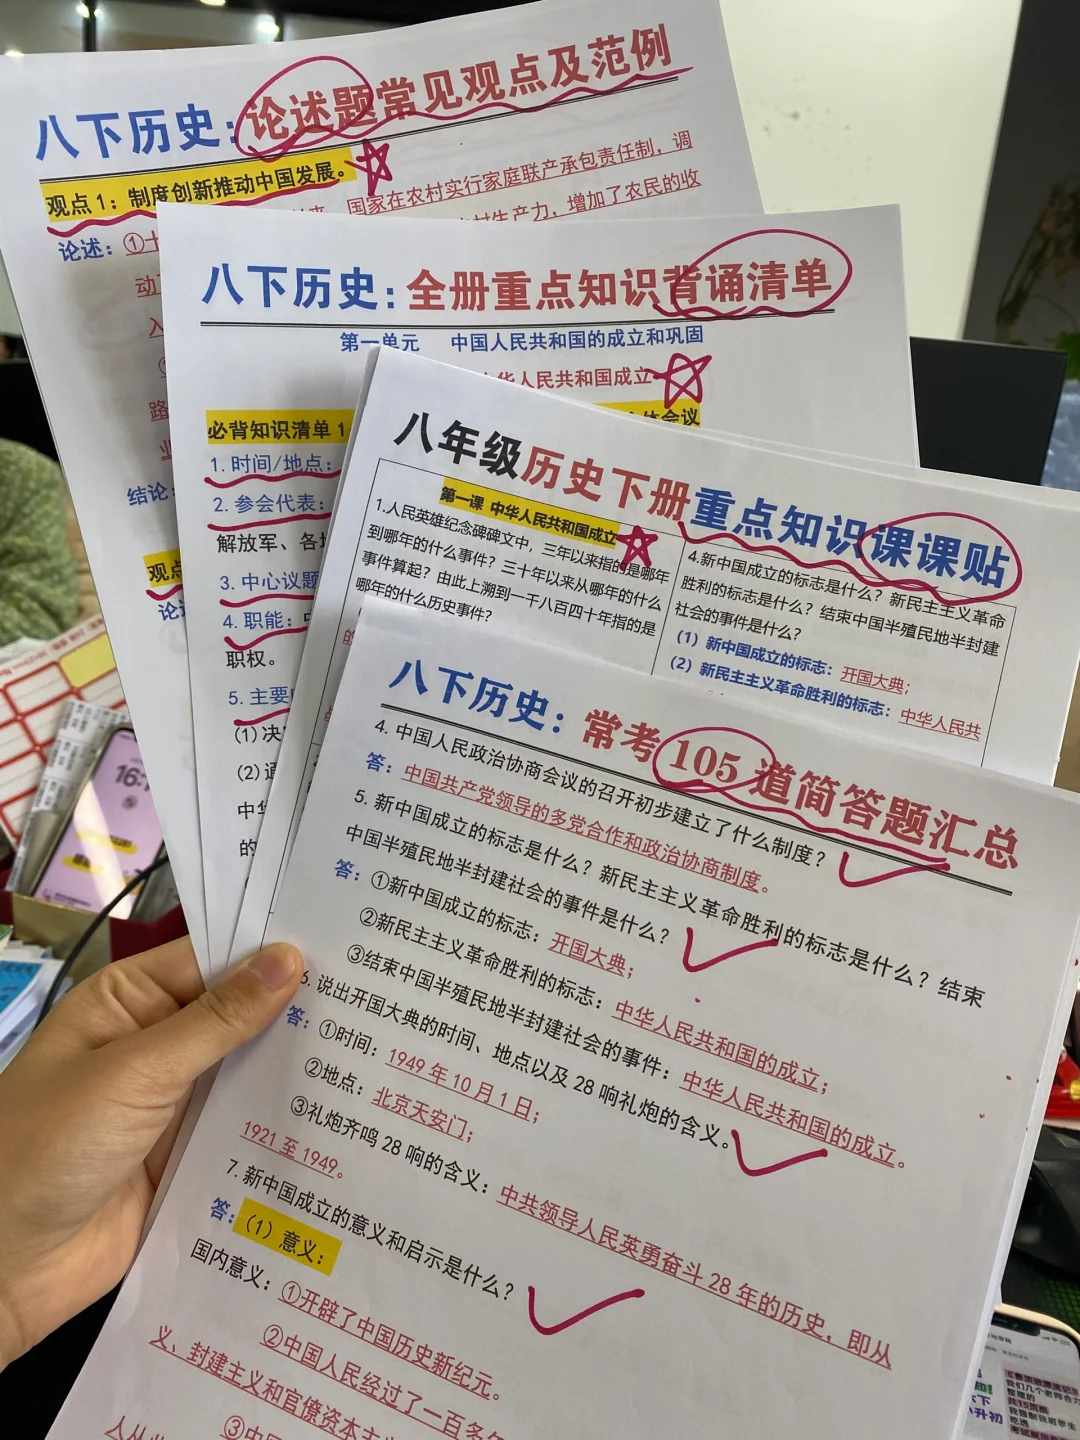 八下历史：论述题常见观点及范例
观点1：制度创新推动中国发展。
国家在农村实行家庭联产承包责任制，调
论述：①十
村生产力，增加了农民的收
动
入
路
业
结论：
观点
论述
八下历史：全册重点知识背诵清单
第一单元 中国人民共和国的成立和巩固
华人民共和国成立
必背知识清单1
体会议
1.时间/地点：
2.参会代表：
解放军、各地
3.中心议题
4.职能：中
职权。
5.主要
(1)决
(2)通
中华
的
八年级历史下册重点知识课课贴
第一课 中华人民共和国成立
1.人民英雄纪念碑碑文中，三年以来指的是哪年
到哪年的什么事件？三十年以来从哪年的什么
事件算起？由此上溯到一千八百四十年指的是
哪年的什么历史事件？
4.新中国成立的标志是什么？新民主主义革命
胜利的标志是什么？结束中国半殖民地半封建
社会的事件是什么？
（1）新中国成立的标志：开国大典；
（2）新民主主义革命胜利的标志：中华人民共
八下历史：常考105道简答题汇总
4. 中国人民政治协商会议的召开初步建立了什么制度？
答：中国共产党领导的多党合作和政治协商制度。
5. 新中国成立的标志是什么？新民主主义革命胜利的标志是什么？结束
中国半殖民地半封建社会的事件是什么？
答：①新中国成立的标志：开国大典；
②新民主主义革命胜利的标志：中华人民共和国的成立；
③结束中国半殖民地半封建社会的事件：中华人民共和国的成立。
6. 说出开国大典的时间、地点以及28响礼炮的含义。
答：①时间：1949年10月1日；
②地点：北京天安门；
③礼炮齐鸣28响的含义：中共领导人民英勇奋斗28年的历史，即从
1921至1949。
7. 新中国成立的意义和启示是什么？
答：（1）意义：
国内意义：①开辟了中国历史新纪元。
②中国人民经过了一百多年
义、封建主义和官僚资本主
③中国
人从此
16: